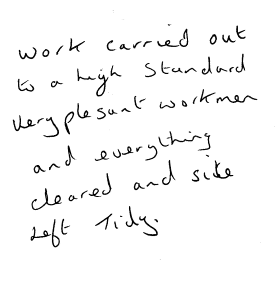 work carried out
to a high Standard
Very plesant workmen
and everything
cleared and site
Left Tidy.